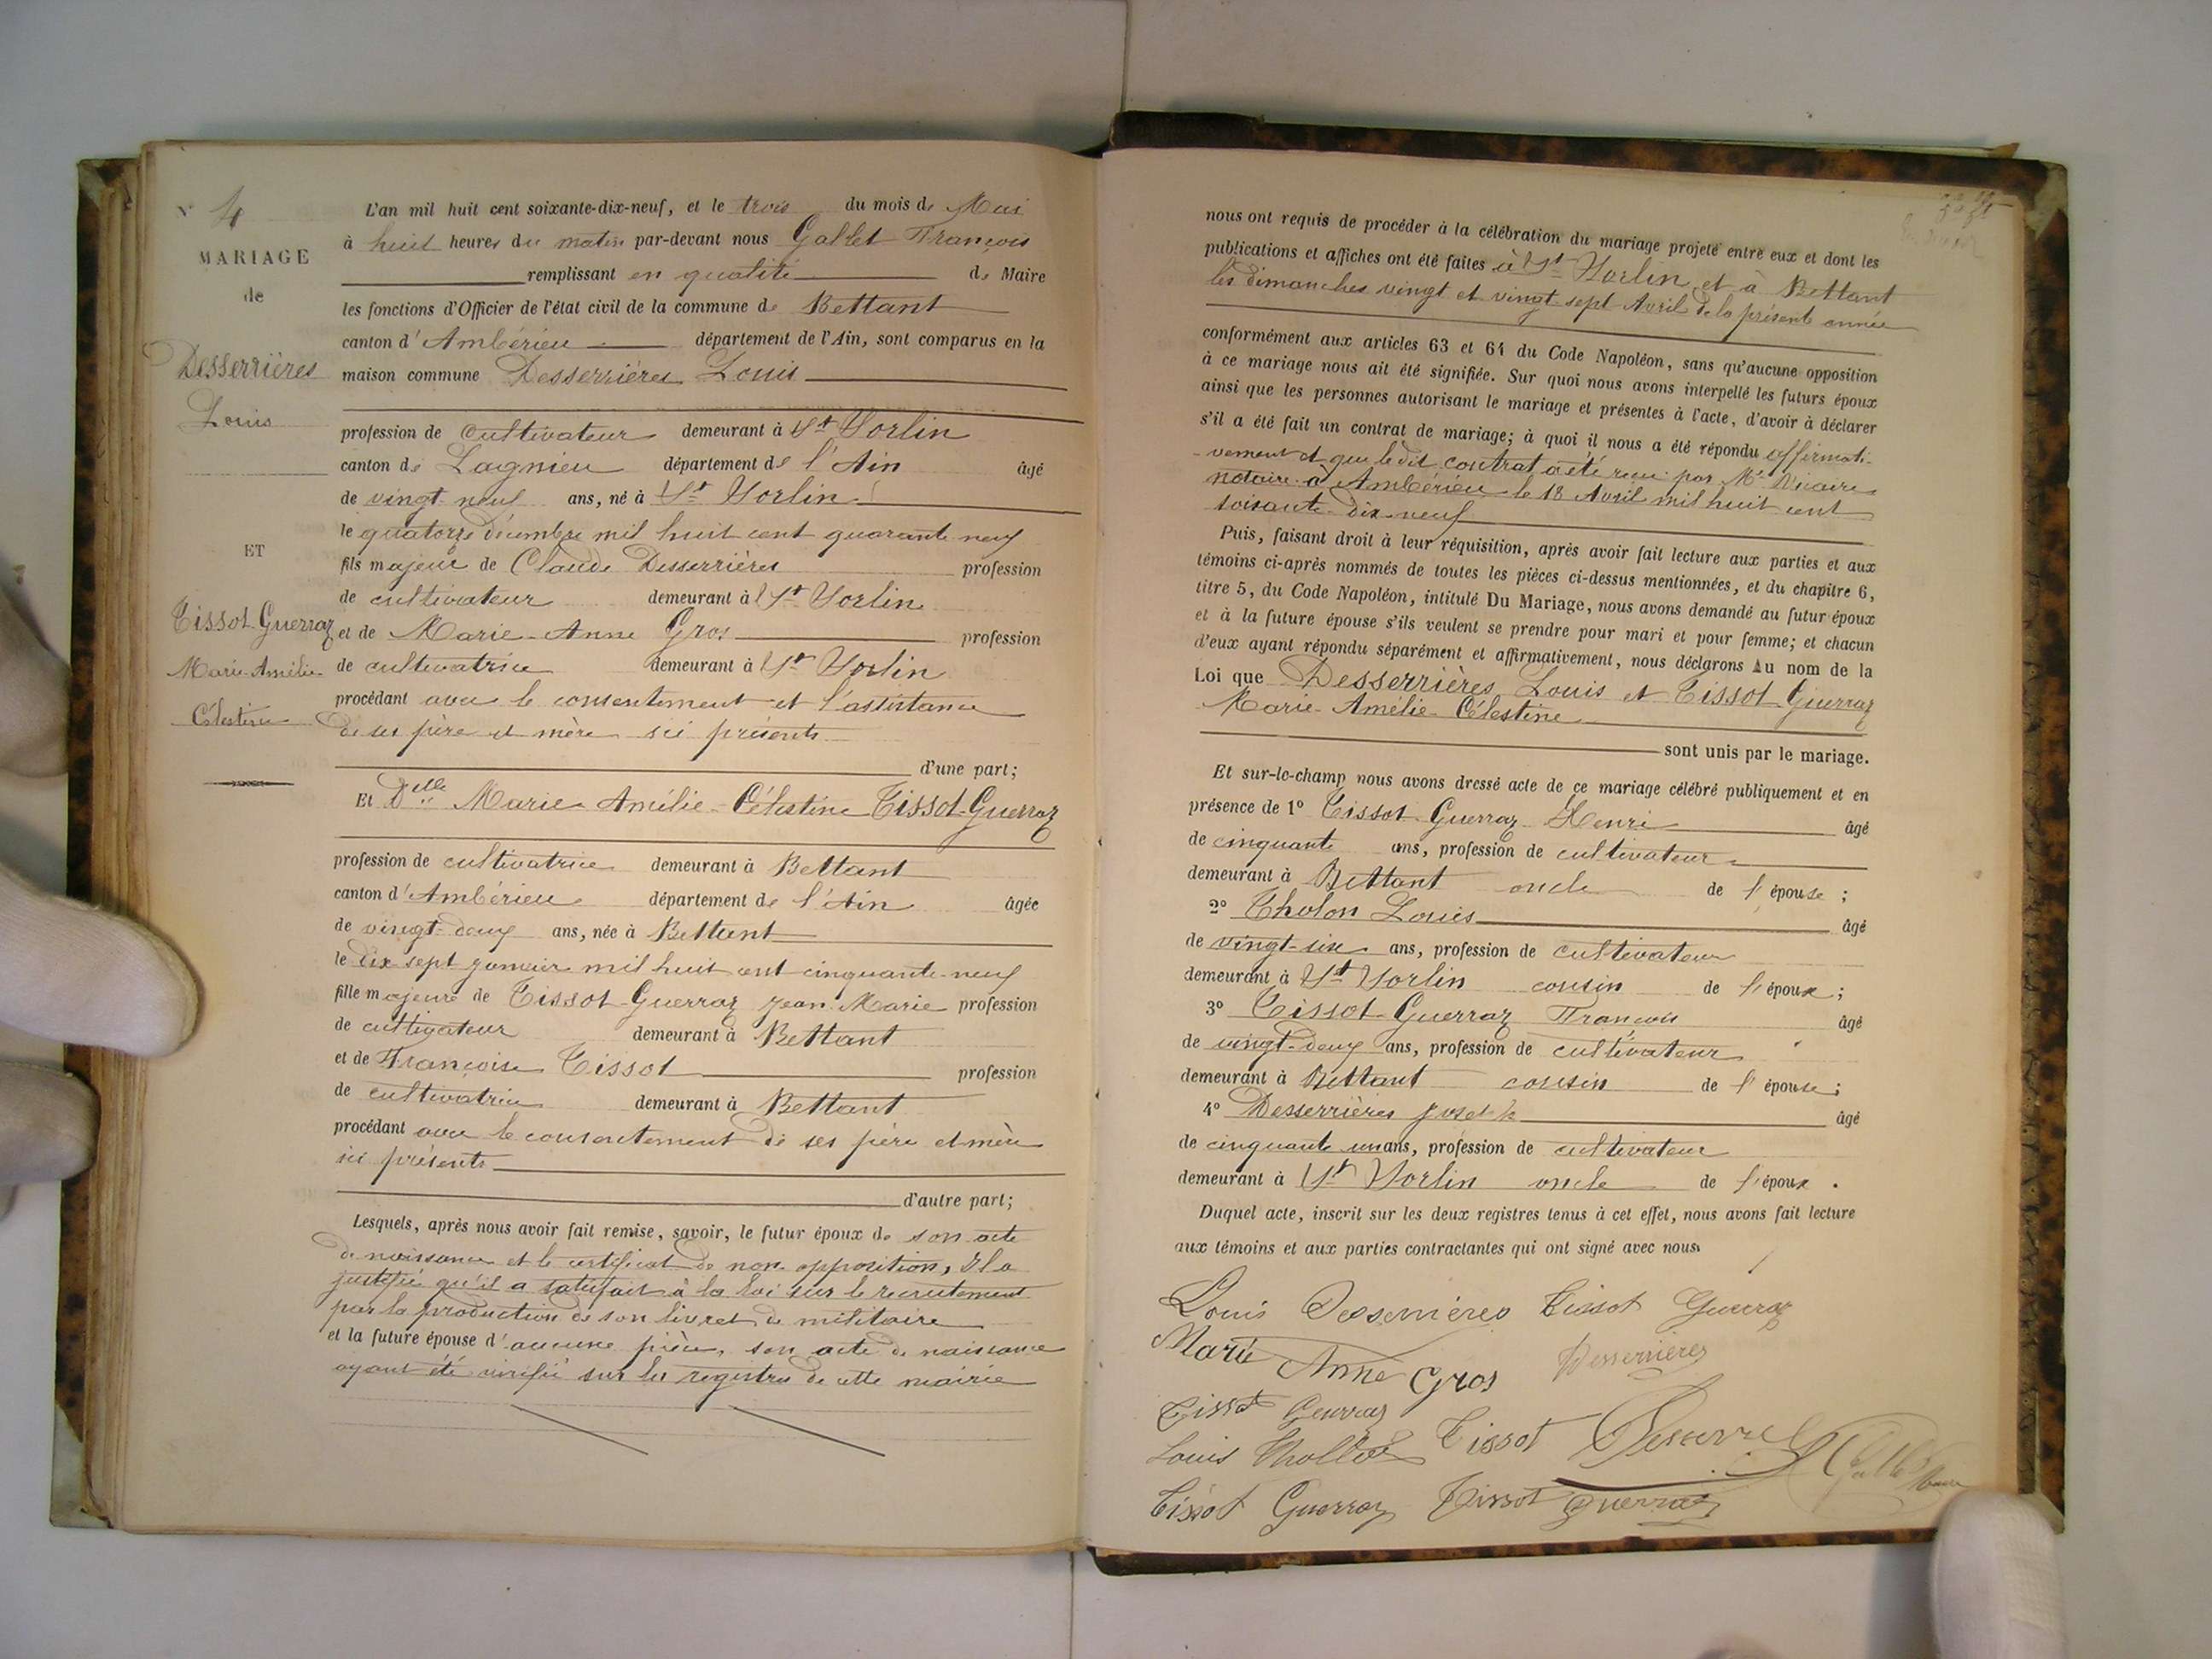 N° 4
MARIAGE
de
Desserrières
Louis
ET
Tissot-Guerraz
Marie-Amélie
Célestine
L'an mil huit cent soixante-dix-neuf, et le trois du mois de Mai
à huit heures du matin par-devant nous Gallet François
remplissant en qualité de Maire
les fonctions d'Officier de l'état civil de la commune de Bettant
canton d'Ambérieu département de l'Ain, sont comparus en la
maison commune Desserrières Louis
profession de Cultivateur demeurant à St Sorlin
canton de Lagnieu département de l'Ain âgé
de vingt neuf ans, né à St Sorlin
le quatorze décembre mil huit cent quarante neuf
fils majeur de Claude Desserrières profession
de cultivateur demeurant à St Sorlin
et de Marie-Anne Gros profession
de cultivatrice demeurant à St Sorlin
procédant avec le consentement et l'assistance
de ses père et mère ici présents
d'une part;
Et Delle Marie Amélie-Célestine Tissot-Guerraz
profession de cultivatrice demeurant à Bettant
canton d'Ambérieu département de l'Ain âgée
de vingt-deux ans, née à Bettant
le dix sept janvier mil huit cent cinquante-neuf
fille majeure de Tissot-Guerraz Jean Marie profession
de cultivateur demeurant à Bettant
et de Françoise Tissot profession
de cultivatrice demeurant à Bettant
procédant avec le consentement de ses père et mère
ici présents
d'autre part;
Lesquels, après nous avoir fait remise, savoir, le futur époux de son acte
de naissance et le certificat de non opposition, Il a
justifié qu'il a satisfait à la loi sur le recrutement
par la production de son livret de militaire
et la future épouse d'aucune pièce, son acte de naissance
ayant été vérifié sur les registres de cette mairie
nous ont requis de procéder à la célébration du mariage projeté entre eux et dont les
publications et affiches ont été faites à St Sorlin et à Bettant
les dimanches vingt et vingt-sept Avril de la présente année
conformément aux articles 63 et 64 du Code Napoléon, sans qu'aucune opposition
à ce mariage nous ait été signifiée. Sur quoi nous avons interpellé les futurs époux
ainsi que les personnes autorisant le mariage et présentes à l'acte, d'avoir à déclarer
s'il a été fait un contrat de mariage; à quoi il nous a été répondu affirmati-
vement et que le dit contrat a été reçu par Me Vicaire
notaire à Ambérieu le 18 Avril mil huit cent
soixante-dix-neuf
Puis, faisant droit à leur réquisition, après avoir fait lecture aux parties et aux
témoins ci-après nommés de toutes les pièces ci-dessus mentionnées, et du chapitre 6,
titre 5, du Code Napoléon, intitulé Du Mariage, nous avons demandé au futur époux
et à la future épouse s'ils veulent se prendre pour mari et pour femme; et chacun
d'eux ayant répondu séparément et affirmativement, nous déclarons Au nom de la
Loi que Desserrières Louis et Tissot Guerraz
Marie-Amélie-Célestine
sont unis par le mariage.
Et sur-le-champ nous avons dressé acte de ce mariage célébré publiquement et en
présence de 1° Tissot-Guerraz Henri âgé
de cinquante ans, profession de cultivateur
demeurant à Bettant oncle de l'épouse;
2° Tholon Louis âgé
de vingt-six ans, profession de cultivateur
demeurant à St Sorlin cousin de l'époux;
3° Tissot-Guerraz François âgé
de vingt-deux ans, profession de cultivateur
demeurant à Bettant cousin de l'épouse;
4° Desserrières Joseph âgé
de cinquante un ans, profession de cultivateur
demeurant à St Sorlin oncle de l'époux.
Duquel acte, inscrit sur les deux registres tenus à cet effet, nous avons fait lecture
aux témoins et aux parties contractantes qui ont signé avec nous
Louis Desserrières Tissot Guerraz
Marie Anne Gros Desserrières
Tissot Guerraz
Louis Tissot
Tissot Guerraz Tissot Guerraz